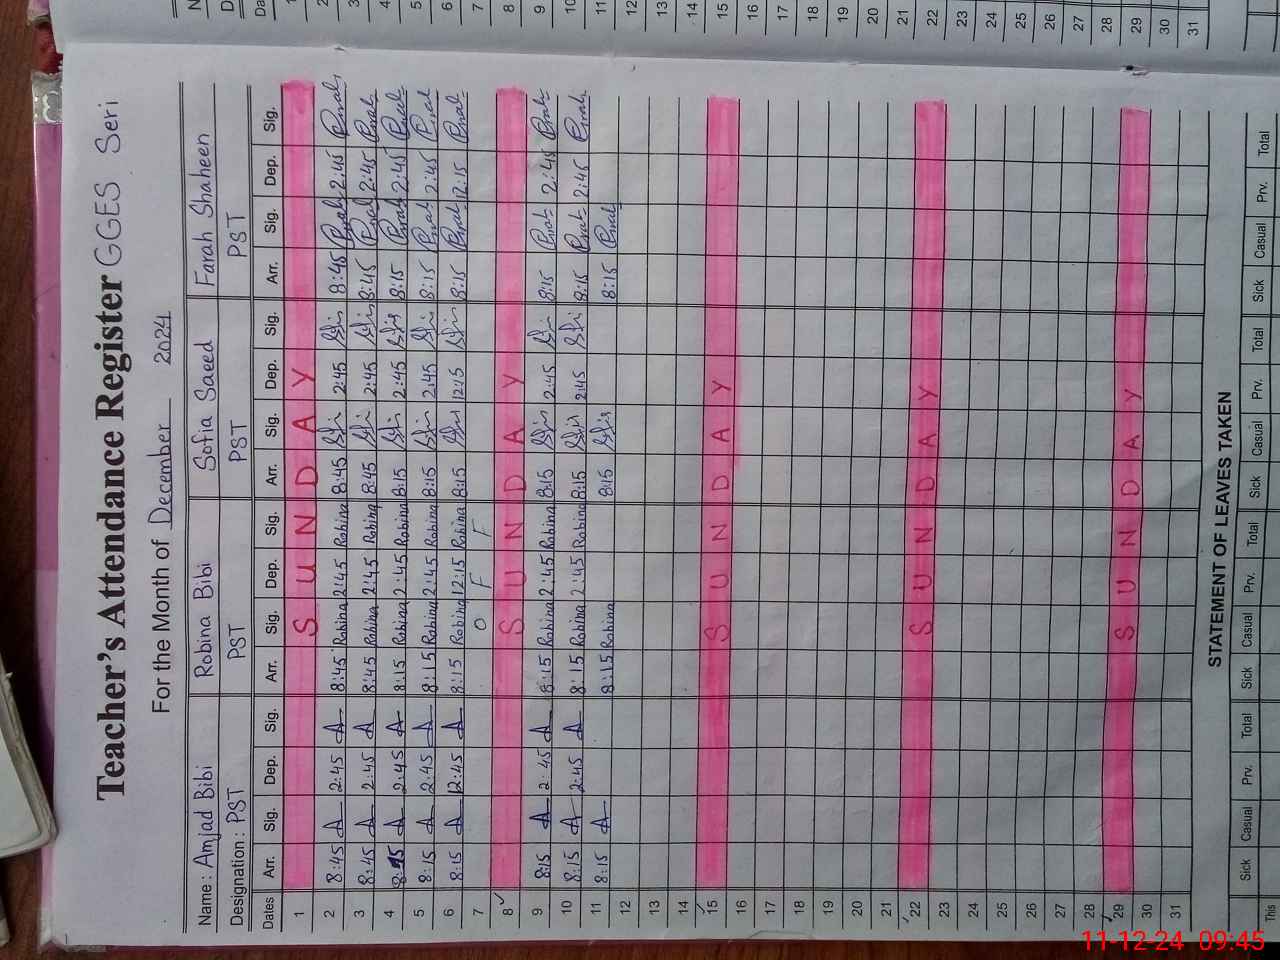 Teacher's Attendance Register GGES Seri
For the Month of December 2024
Name: Amjad Bibi Robina Bibi Sofia Saeed Farah Shaheen
Designation: PST PST PST PST
Dates Arr. Sig. Dep. Sig. Arr. Sig. Dep. Sig. Arr. Sig. Dep. Sig. Arr. Sig. Dep. Sig.
1 S U N D A Y
2 8:45 A 2:45 A 8:45 Robina 2:45 Robina 8:45 2:45 8:45 2:45
3 8:45 A 2:45 A 8:45 Robina 2:45 Robina 8:45 2:45 8:45 2:45
4 8:15 A 2:45 A 8:15 Robina 2:45 Robina 8:15 2:45 8:15 2:45
5 8:15 A 2:45 A 8:15 Robina 2:45 Robina 8:15 2:45 8:15 2:45
6 8:15 A 12:45 A 8:15 Robina 12:15 Robina 8:15 12:15 8:15 12:15
7 O F F
8 S U N D A Y
9 8:15 A 2:45 A 8:15 Robina 2:45 Robina 8:15 2:45 8:15 2:45
10 8:15 A 2:45 A 8:15 Robina 2:45 Robina 8:15 2:45 8:15 2:45
11 8:15 A 8:15 Robina 8:15 8:15
12
13
14
15 S U N D A Y
16
17
18
19
20
21
22 S U N D A Y
23
24
25
26
27
28
29 S U N D A Y
30
31
STATEMENT OF LEAVES TAKEN
Sick Casual Prv. Total Sick Casual Prv. Total Sick Casual Prv. Total Sick Casual Prv. Total
This
1
2
3
4
5
6
7
8
9
10
11
12
13
14
15
16
17
18
19
20
21
22
23
24
25
26
27
28
29
30
31
11-12-24 09:45